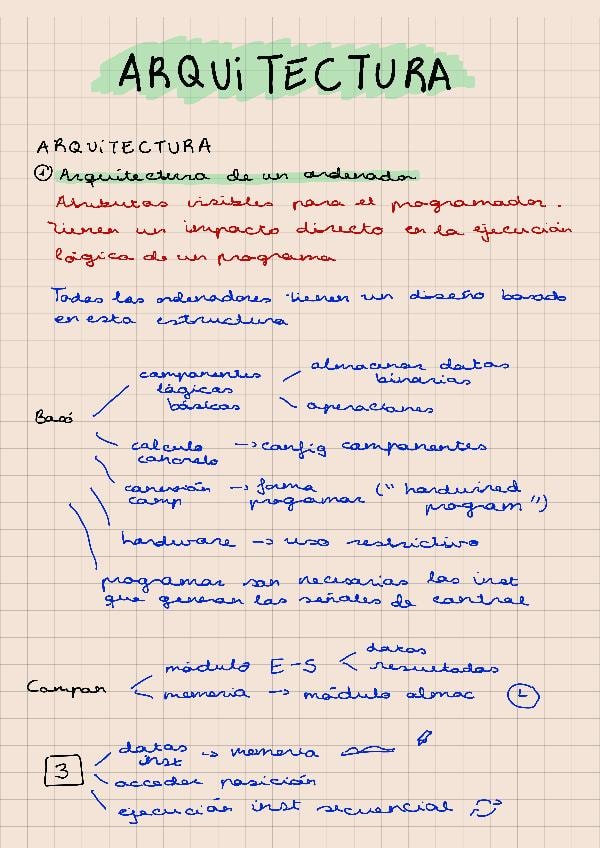 ARQUITECTURA
ARQUITECTURA
① Arquitectura de un ordenador
Atributos visibles para el programador.
Tienen un impacto directo en la ejecución
lógica de un programa
Todos los ordenadores tienen un diseño basado
en esta estructura
Basó
componentes
lógicos
básicos
almacenar datos
binarios
operaciones
calculo
concreto
→ config componentes
conexión
comp
→ forma
programar ("hardwired
program")
hardware → uso restrictivo
programar son necesarias las inst
que generan las señales de control
Compon
módulo E-S
datos
resultados
memoria → módulo almac
L
3
datos
inst
→ memoria
acceder posición
ejecución inst secuencial